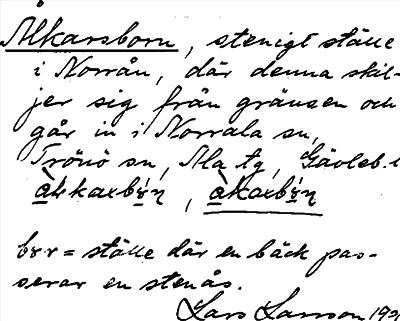 Ålkarsborn, stenigt ställe
i Norrån, där denna skil-
jer sig från gränsen och
går in i Norrala sn,
Trönö sn, Ala tg, Gävleb. l
bɤr = ställe där en bäck pas-
serar en stenås.
Lars Larsson 192